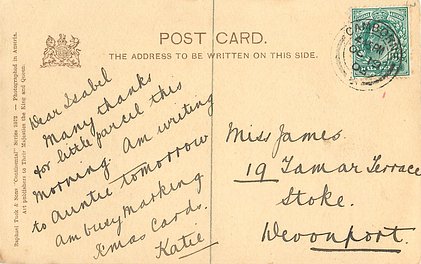 POST CARD.
THE ADDRESS TO BE WRITTEN ON THIS SIDE.
Raphael Tuck & Sons "Continental" Series — Photographed in Austria.
Art publishers to Their Majesties the King and Queen.
Dear Isabel
Many thanks
for little parcel this
morning. Am writing
to Auntie tomorrow
Am busy marking
Xmas Cards.
Katie
CAMBORNE
Miss James.
19 Tamar Terrace
Stoke.
Devonport.